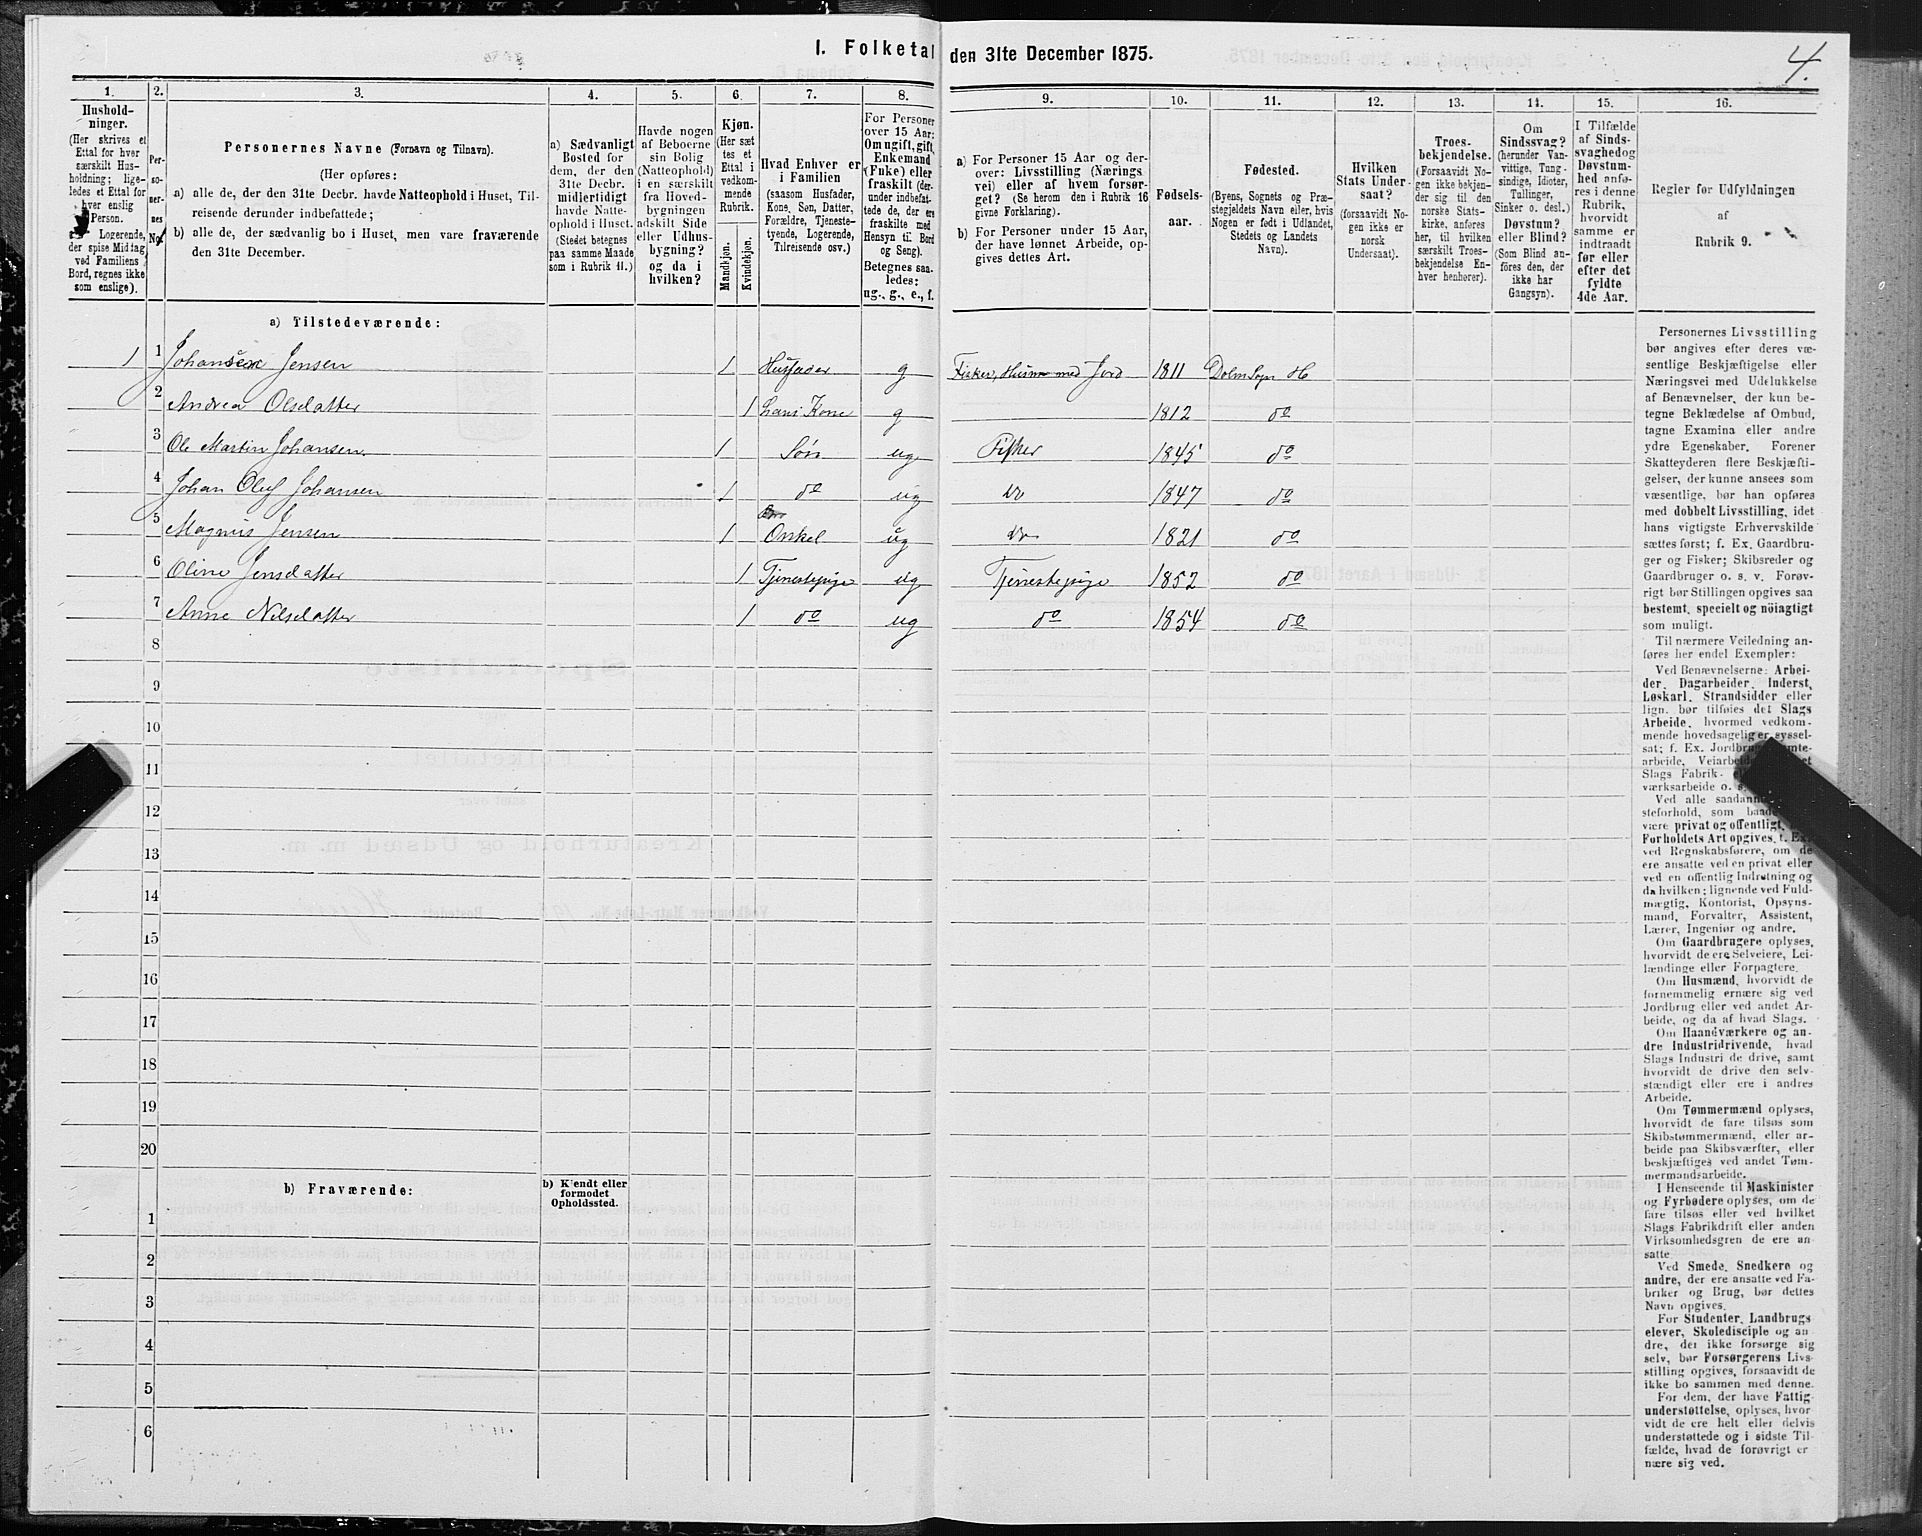 I. Folketal den 31te December 1875.
4.
1.
Hushold-
ninger.
(Her skrives et
Ettal for hver
særskilt Hus-
holdning; lige-
ledes et Ettal for
hver enslig
Person.
Logerende,
der spise Middag
ved Familiens
Bord, regnes ikke
som enslige).
2.
Per-
so-
ner-
nes
No.
3.
Personernes Navne (Fornavn og Tilnavn).
(Her opføres:
a) alle de, der den 31te Decbr. havde Natteophold i Huset, Til-
reisende derunder indbefattede;
b) alle de, der sædvanlig bo i Huset, men vare fraværende
den 31te December.
4.
a) Sædvanligt
Bosted for
dem, der den
31te Decbr.
midlertidigt
havde Natte-
ophold i Huset.
(Stedet betegnes
paa samme Maade
som i Rubrik 11.)
5.
Havde nogen
af Beboerne
sin Bolig
(Natteophold)
i en særskilt
fra Hoved-
bygningen
adskilt Side
eller Udhus-
bygning?
og da i
hvilken?
6.
Kjøn.
(Her sæt
tes et
Ettal i
vedkom-
mende
Rubrik.
Mandkjøn.
Kvindekjøn.
7.
Hvad Enhver er
i Familien
(saasom Husfader,
Kone, Søn, Datter,
Forældre, Tjeneste-
tyende, Logerende,
Tilreisende osv.)
8.
For Personer
over 15 Aar:
Om ugift, gift,
Enkemand
(Enke) eller
fraskilt (der-
under indbefat-
tede de, der ere
fraskilte med
Hensyn til Bord
og Seng).
Betegnes saa-
ledes:
ug., g., e., f.
9.
a) For Personer 15 Aar og der-
over: Livsstilling (Nærings
vei) eller af hvem forsør-
get? (Se herom den i Rubrik 16
givne Forklaring).
b) For Personer under 15 Aar,
der have lønnet Arbeide, op-
gives dettes Art.
10.
Fødsels-
aar.
11.
Fødested.
(Byens, Sognets og Præ-
stegjeldets Navn eller, hvis
Nogen er født i Udlandet,
Stedets og Landets
Navn).
12.
Hvilken
Stats Under-
saat?
(forsaavidt No-
gen ikke er
norsk
Undersaat).
13.
Troes-
bekjendelse.
(Forsaavidt No-
gen ikke bekjen-
der sig til den
norske Stats-
kirke, anføres
her, til hvilken
særskilt Troes-
bekjendelse En-
hver henhører).
14.
Om
Sindssvag?
(herunder Van-
vittige, Tung-
sindige, Idioter,
Tullinger,
Sinker o. desl.)
Døvstum?
eller Blind?
(Som Blind an-
føres den, der
ikke har
Gangsyn).
15.
I Tilfælde
af Sinds-
svaghed og
Døvstum-
hed anfø-
res i denne
Rubrik,
hvorvidt
samme er
indtraadt
før eller
efter det
fyldte
4de Aar.
16.
Regler for Udfyldningen
af
Rubrik 9.
a) Tilstedeværende:
1 1 Johan Jensen 1 Husfader g Fisker, Husm med Jord 1811 Dolm Sogn H
2 Andrea Olsdatter 1 hans Kone g 1812 do
3 Ole Martin Johansen 1 Søn ug Fisker 1845 do
4 Johan Oluf Johansen 1 do ug do 1847 do
5 Magnus Jensen 1 Onkel ug do 1821 do
6 Oline Jensdatter 1 Tjenestepige ug Tjenestepige 1852 do
7 Anne Nilsdatter 1 do ug do 1854 do
8
9
10
11
12
13
14
15
16
17
18
19
20
b) Fraværende:
b) Kjendt eller
formodet
Opholdssted.
1
2
3
4
5
6
Personernes Livsstilling
bør angives efter deres væ-
sentlige Beskjæftigelse eller
Næringsvei med Udelukkelse
af Benævnelser, der kun be-
tegne Beklædelse af Ombud,
tagne Examina eller andre
ydre Egenskaber. Forener
Skatteyderen flere Beskjæfti-
gelser, der kunne ansees som
væsentlige, bør han opføres
med dobbelt Livsstilling, idet
hans vigtigste Erhvervskilde
sættes først; f. Ex. Gaardbru-
ger og Fisker; Skibsreder og
Gaardbruger o. s. v. Forøv-
rigt bør Stillingen opgives saa
bestemt, specielt og nöiagtigt
som muligt.
Til nærmere Veiledning an-
føres her endel Exempler:
Ved Benævnelserne: Arbei-
der, Dagarbeider, Inderst,
Løskarl, Strandsidder eller
lign. bør tilføies det Slags
Arbeide, hvormed vedkom-
mende hovedsagelig er syssel-
sat; f. Ex. Jordbrug
arbeide,
Slags Fabrik-
værksarbeide o. s.
Ved alle
steforhold, som
være privat og offentligt,
Forholdets Art opgives, f. Ex.
ved Regnskabsførere, om de
ere ansatte ved en privat eller
ved en offentlig Indretning og
da hvilken; lignende ved Fuld-
mægtig, Kontorist, Opsyns-
mand, Forvalter, Assistent,
Lærer, Ingeniør og andre.
Om Gaardbrugere oplyses,
hvorvidt de ere Selveiere, Lei-
lændinge eller Forpagtere.
Om Husmænd, hvorvidt de
fornemmelig ernære sig ved
Jordbrug eller ved andet Ar-
beide, og da af hvad Slags.
Om Haandværkere og an-
dre Industridrivende, hvad
Slags Industri de drive, samt
hvorvidt de drive den selv-
stændigt eller ere i andres
Arbeide.
Om Tømmermænd oplyses,
hvorvidt de fare tilsøs som
Skibstømmermænd, eller ar-
beide paa Skibsværfter, eller
beskjæftiges ved andet Tøm-
mermandsarbeide.
I Henseende til Maskinister
og Fyrbødere oplyses, om de
fare tilsøs eller ved hvilket
Slags Fabrikdrift eller anden
Virksomhedsgren de ere an-
satte
Ved Smede, Snedkere og
andre, der ere ansatte ved Fa-
briker og Brug, bør dettes
Navn opgives.
For Studenter, Landbrugs
elever, Skoledisciple og an-
dre, der ikke forsørge sig
selv, bør Forsørgerens Livs-
stilling opgives, forsaavidt de
ikke bo sammen med denne.
For dem, der have Fattig-
understøttelse, oplyses, hvor
vidt de ere helt eller delvis
understøttede og i sidste Til-
fælde, hvad de forøvrigt er
nære sig ved.